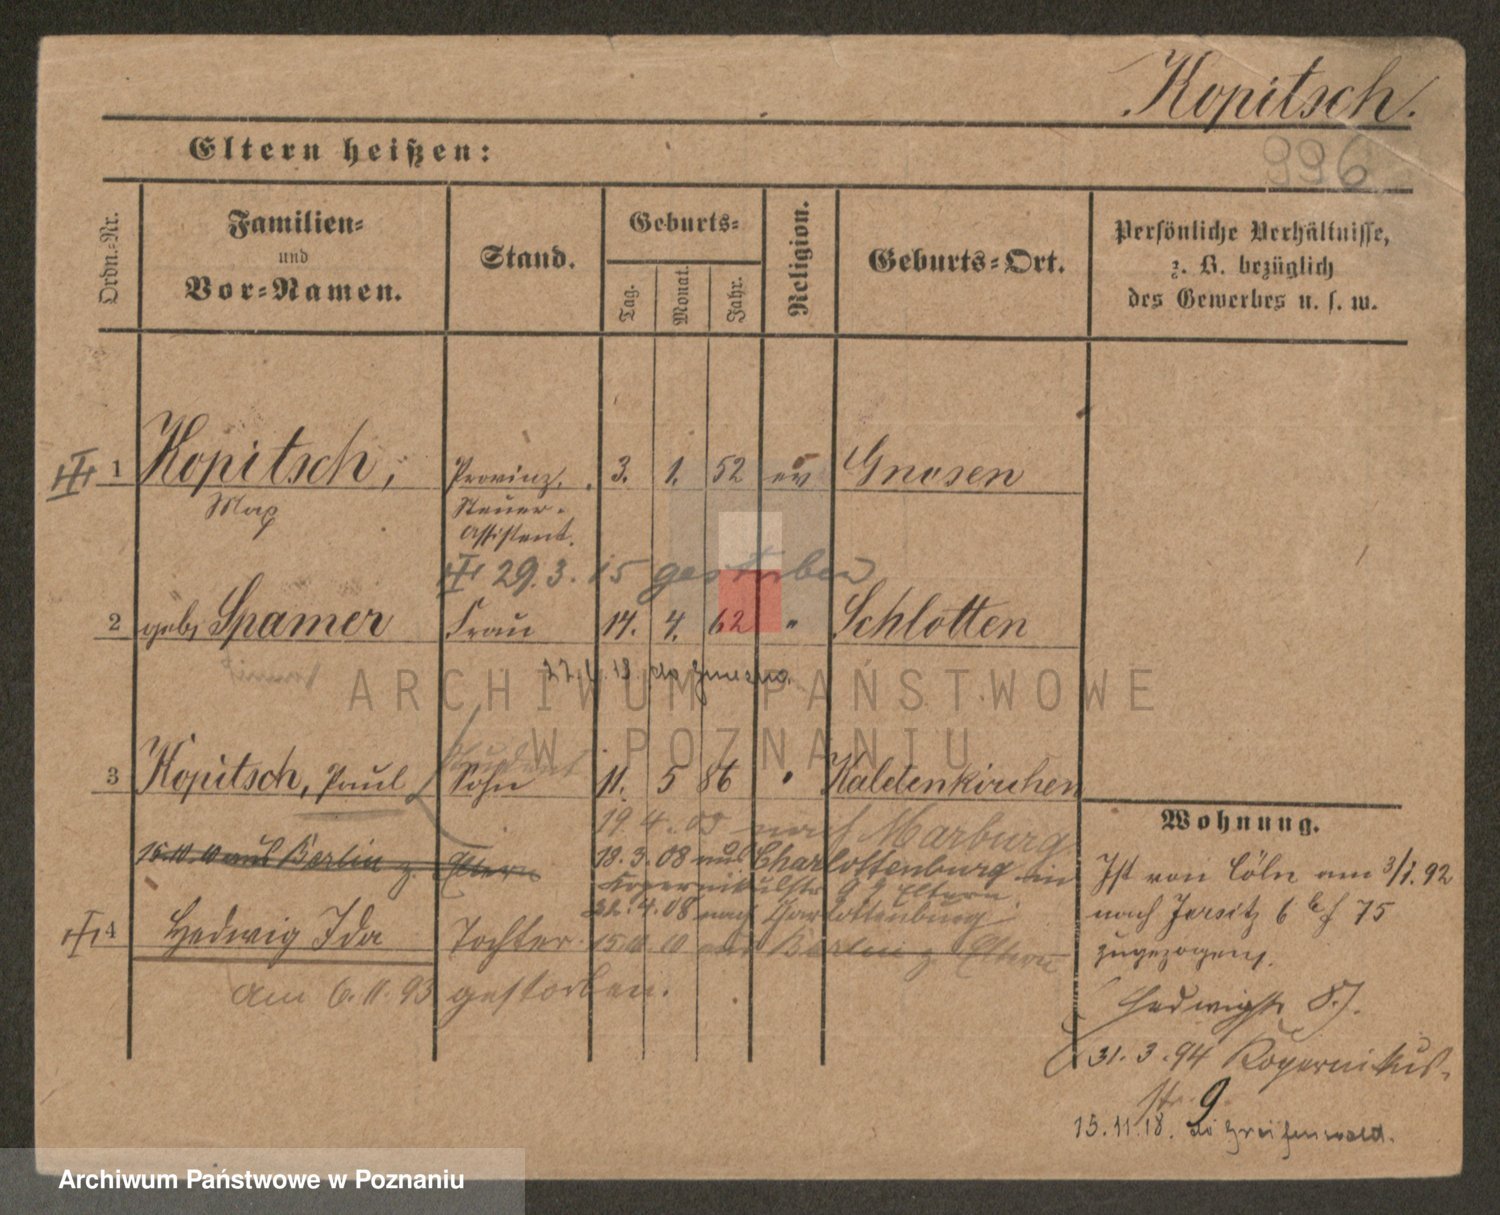 Kopitsch.
996
Eltern heißen:
Ordn.-Nr.
Familien-
und
Vor-Namen.
Stand.
Geburts-
Tag.
Monat.
Jahr.
Religion.
Geburts-Ort.
Persönliche Verhältnisse,
z. B. bezüglich
des Gewerbes u. s. w.
1 Kopitsch, Provinz. 3. 1. 52 ev Gnosen
Max Steuer-
Assistent.
29.3.15 gestorben
2 geb. Spamer Frau 14. 4. 62 " Schlotten
Student
3 Kopitsch, Paul Sohn 11. 5 86 " Kaldenkirchen
19.4.05 nach Marburg
15.10.10 aus Berlin z. Eltern
18.3.08 aus Charlottenburg in
Kopernikusstr 9 z Eltern
22.4.08 nach Charlottenburg
4 Hedwig Ida Tochter
15.10.10 aus Berlin z Eltern
am 6.11.93 gestorben.
Wohnung.
Ist von Cöln am 3/1.92
nach Jersitz 75
zugezogen.
Hedwigstr
31.3.94 Kopernikus-
str. 9
15.11.18. Greifenwald.
ARCHIWUM PAŃSTWOWE
W POZNANIU
Archiwum Państwowe w Poznaniu